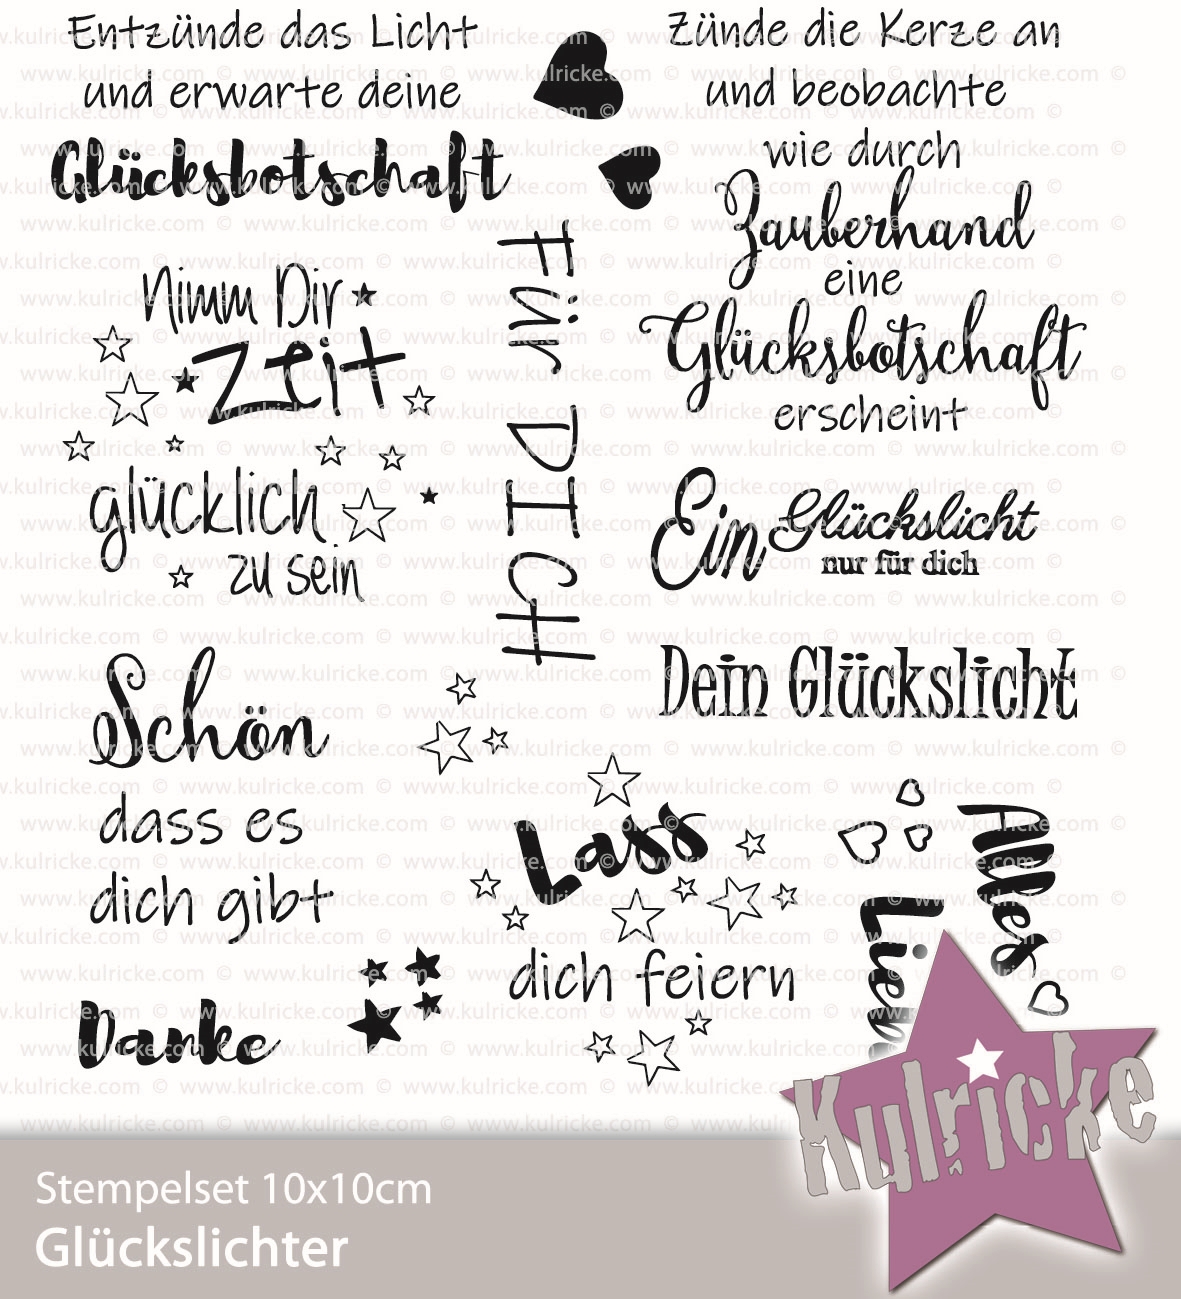 Entzünde das Licht
und erwarte deine
Glücksbotschaft
Zünde die Kerze an
und beobachte
wie durch
Zauberhand
eine
Glücksbotschaft
erscheint
Nimm Dir
Zeit
glücklich
zu sein
für DICH
Ein Glückslicht
nur für dich
Dein Glückslicht
Schön
dass es
dich gibt
Danke
Lass
dich feiern
Alles
Kulricke
Stempelset 10x10cm
Glückslichter
www.kulricke.com ©